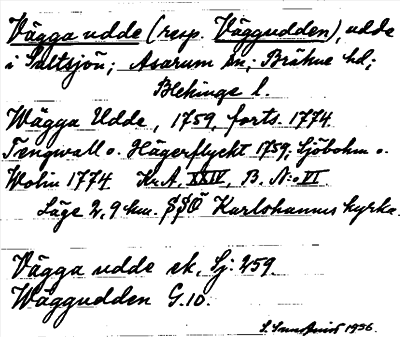 Vägga udde (resp. Väggudden), udde
i Saltsjön; Asarum sn; Bräkne hd;
Blekinge l.
Wägga Udde, 1759, forts. 1774.
Tengwall o. Hägerflyckt 1759; Sjöbohm o.
Wolin 1774. Kr.A. XXIV, B. N:o VI.
Läge 2,9 km. SSÖ Karlshamns kyrka.
Vägga udde ek. Sj: 259.
Väggudden G.10.
1936